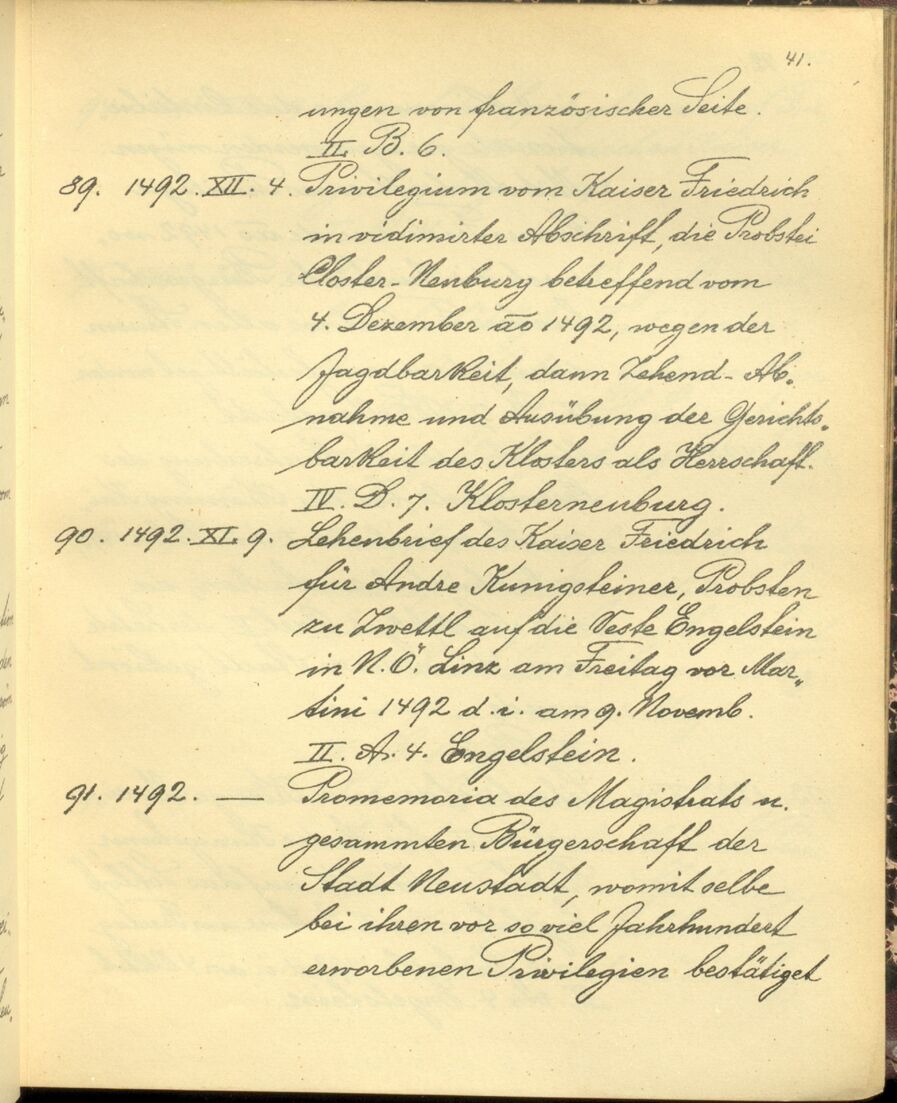 41.
ungen von französischer Seite.
II. B. 6.
89. 1492. XII. 4. Privilegium vom Kaiser Friedrich
in vidimirter Abschrift, die Probstei
Closter-Neuburg betreffend vom
4. Dezember ao 1492, wegen der
Jagdbarkeit, dann Zehend-Ab-
nahme und Ausübung der Gerichts-
barkeit des Klosters als Herrschaft.
IV. D. 7. Klosterneuburg.
90. 1492. XI. 9. Lehenbrief des Kaiser Friedrich
für Andre Kunigsteiner, Probsten
zu Zwettl auf die Veste Engelstein
in N.Ö. Linz am Freitag vor Mar-
tini 1492 d. i. am 9. Novemb.
II. A. 4. Engelstein.
91. 1492. — Promemoria des Magistrats u.
gesammten Bürgerschaft der
Stadt Neustadt, womit selbe
bei ihren vor so viel Jahrhundert
erworbenen Privilegien bestätiget